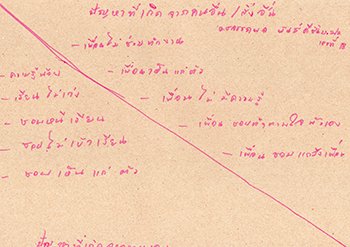 ปัญหาที่เกิดจากคนอื่น/สิ่งอื่น
เลขที่ 18
- เพื่อนไม่ช่วยทำงาน
- ความรู้น้อย
- เพื่อนเห็นแก่ตัว
- เรียนไม่เก่ง
- เพื่อนไม่มีความรู้
- ชอบหนีเรียน
- เพื่อนชอบทำตามใจตัวเอง
- ชอบไม่เข้าเรียน
- เพื่อนชอบแกล้งเพื่อน
- ชอบเห็นแก่ตัว